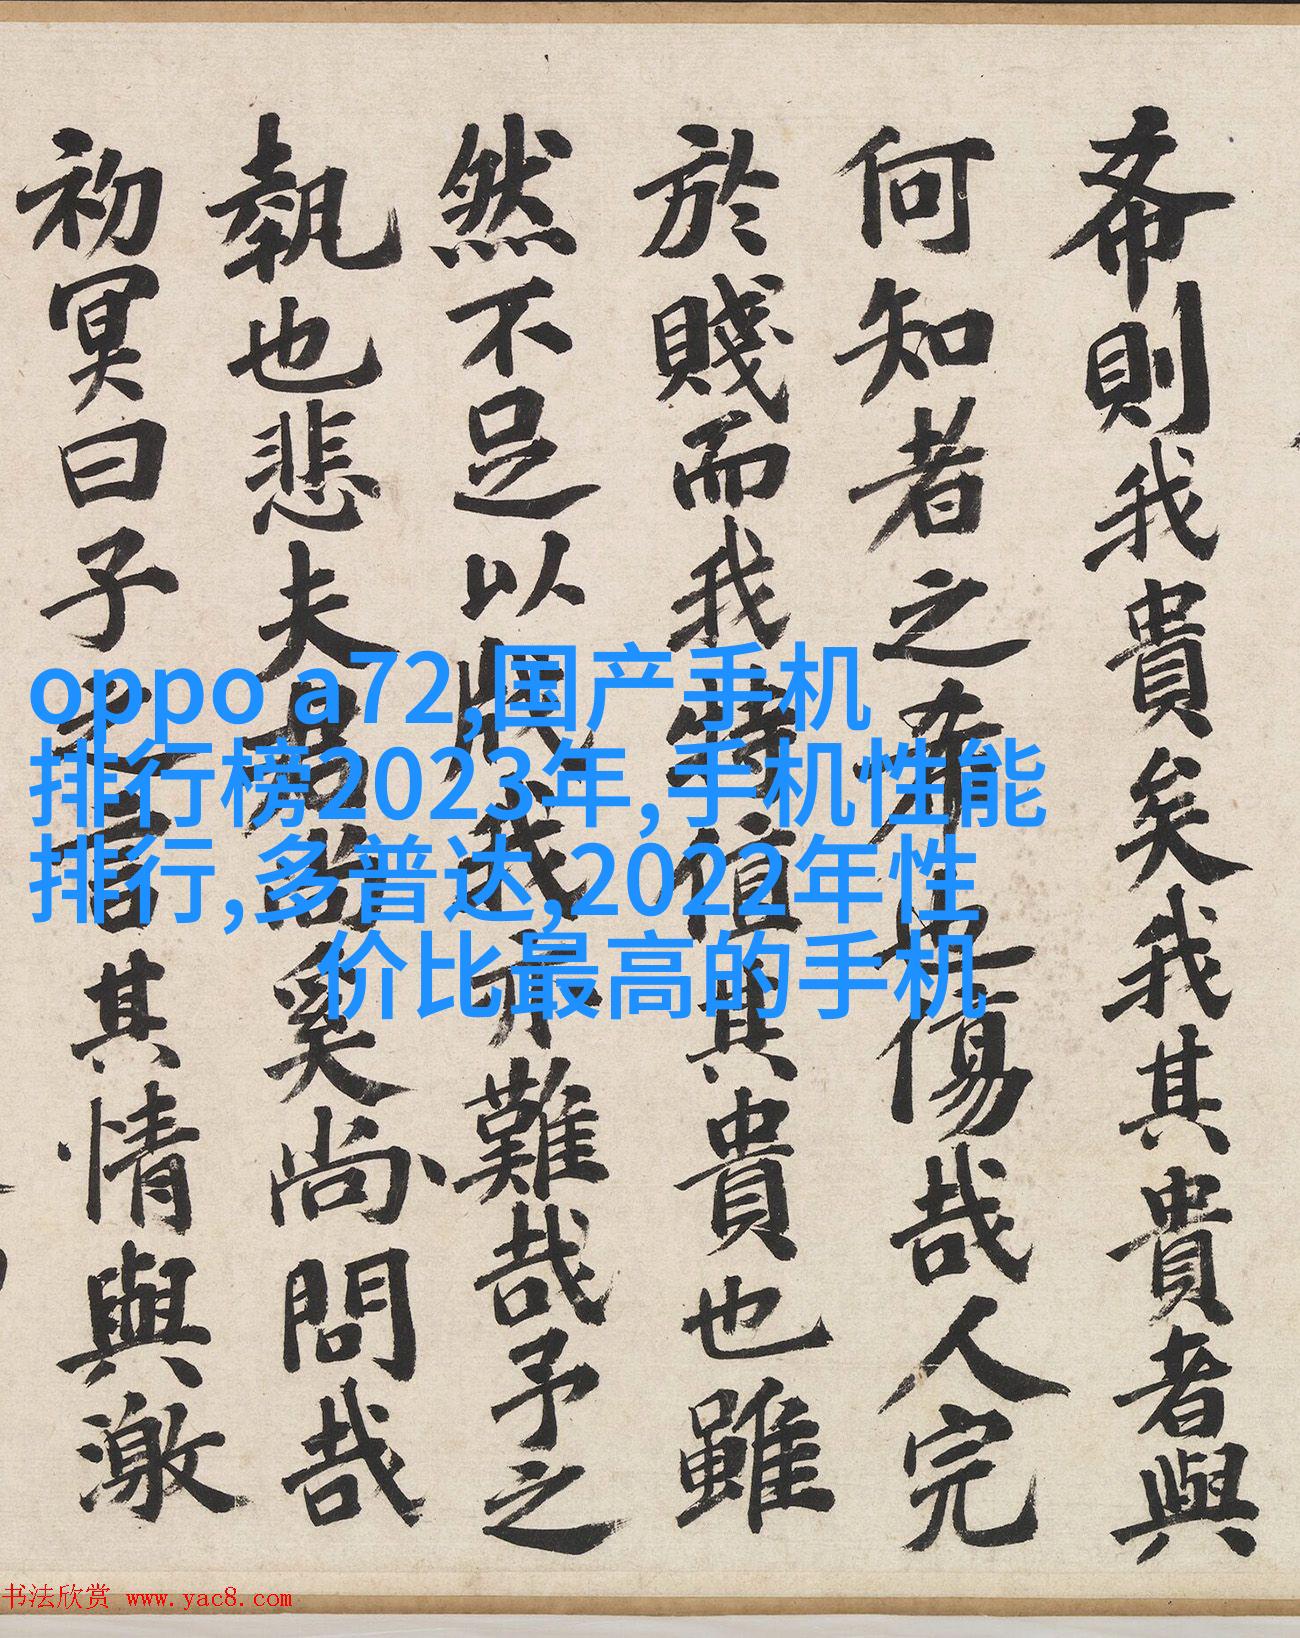 希則我貴矣我其貴者與
何知者之希傷哉人完
於賤而我特值其貴也雖
然不足以我亦難哉予之
執也悲夫奚尚問哉
初冥曰子之言其情與激
oppo a72,国产手机
排行榜2023年,手机性能
排行,多普达,2022年性
价比最高的手机
书法欣赏 www.yac8.com